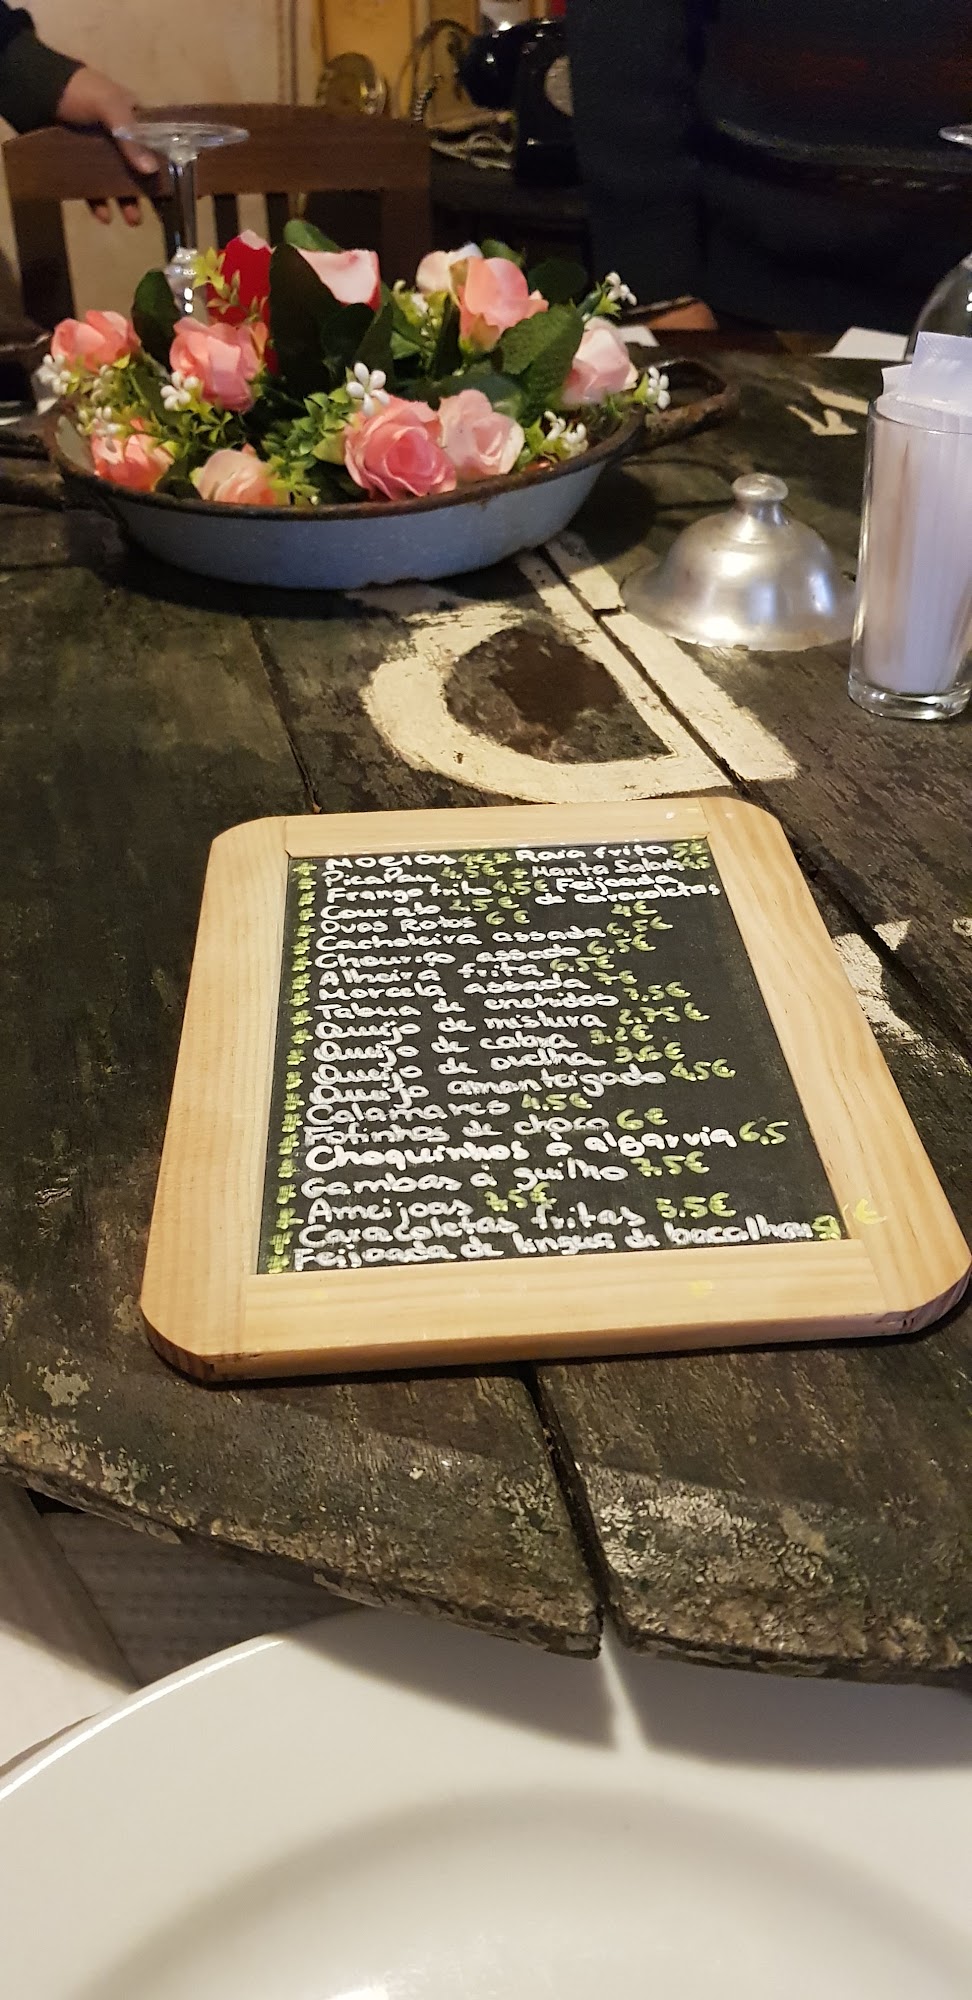 Moelas 4€ * Raia frita 5€
PicaPau 4,5€ * Manta Salona 4,5
Frango frito 4,5€ Feijoada
de caracoletas
Courato 2,5€ 4€
Ovos Rotos 6€
Cacholeira assada 6,5€
Chouriço assado 6,5€
Alheira frita 6,5€
Morcela assada 7€
Tabua de enchidos 7,5€
Queijo de mistura 2,75€
Queijo de cabra 3.2€
Queijo de ovelha 3.6€
Queijo amanteigado 4,5€
Calamares 4,5€
Fatinhos de choco 6€
Choquinhos à algarvia 6,5
Gambas à guilho 7,5€
Ameijoas 7,5€
Caracoletas fritas 5.5€
Feijoada de lingua de bacalhau 5€